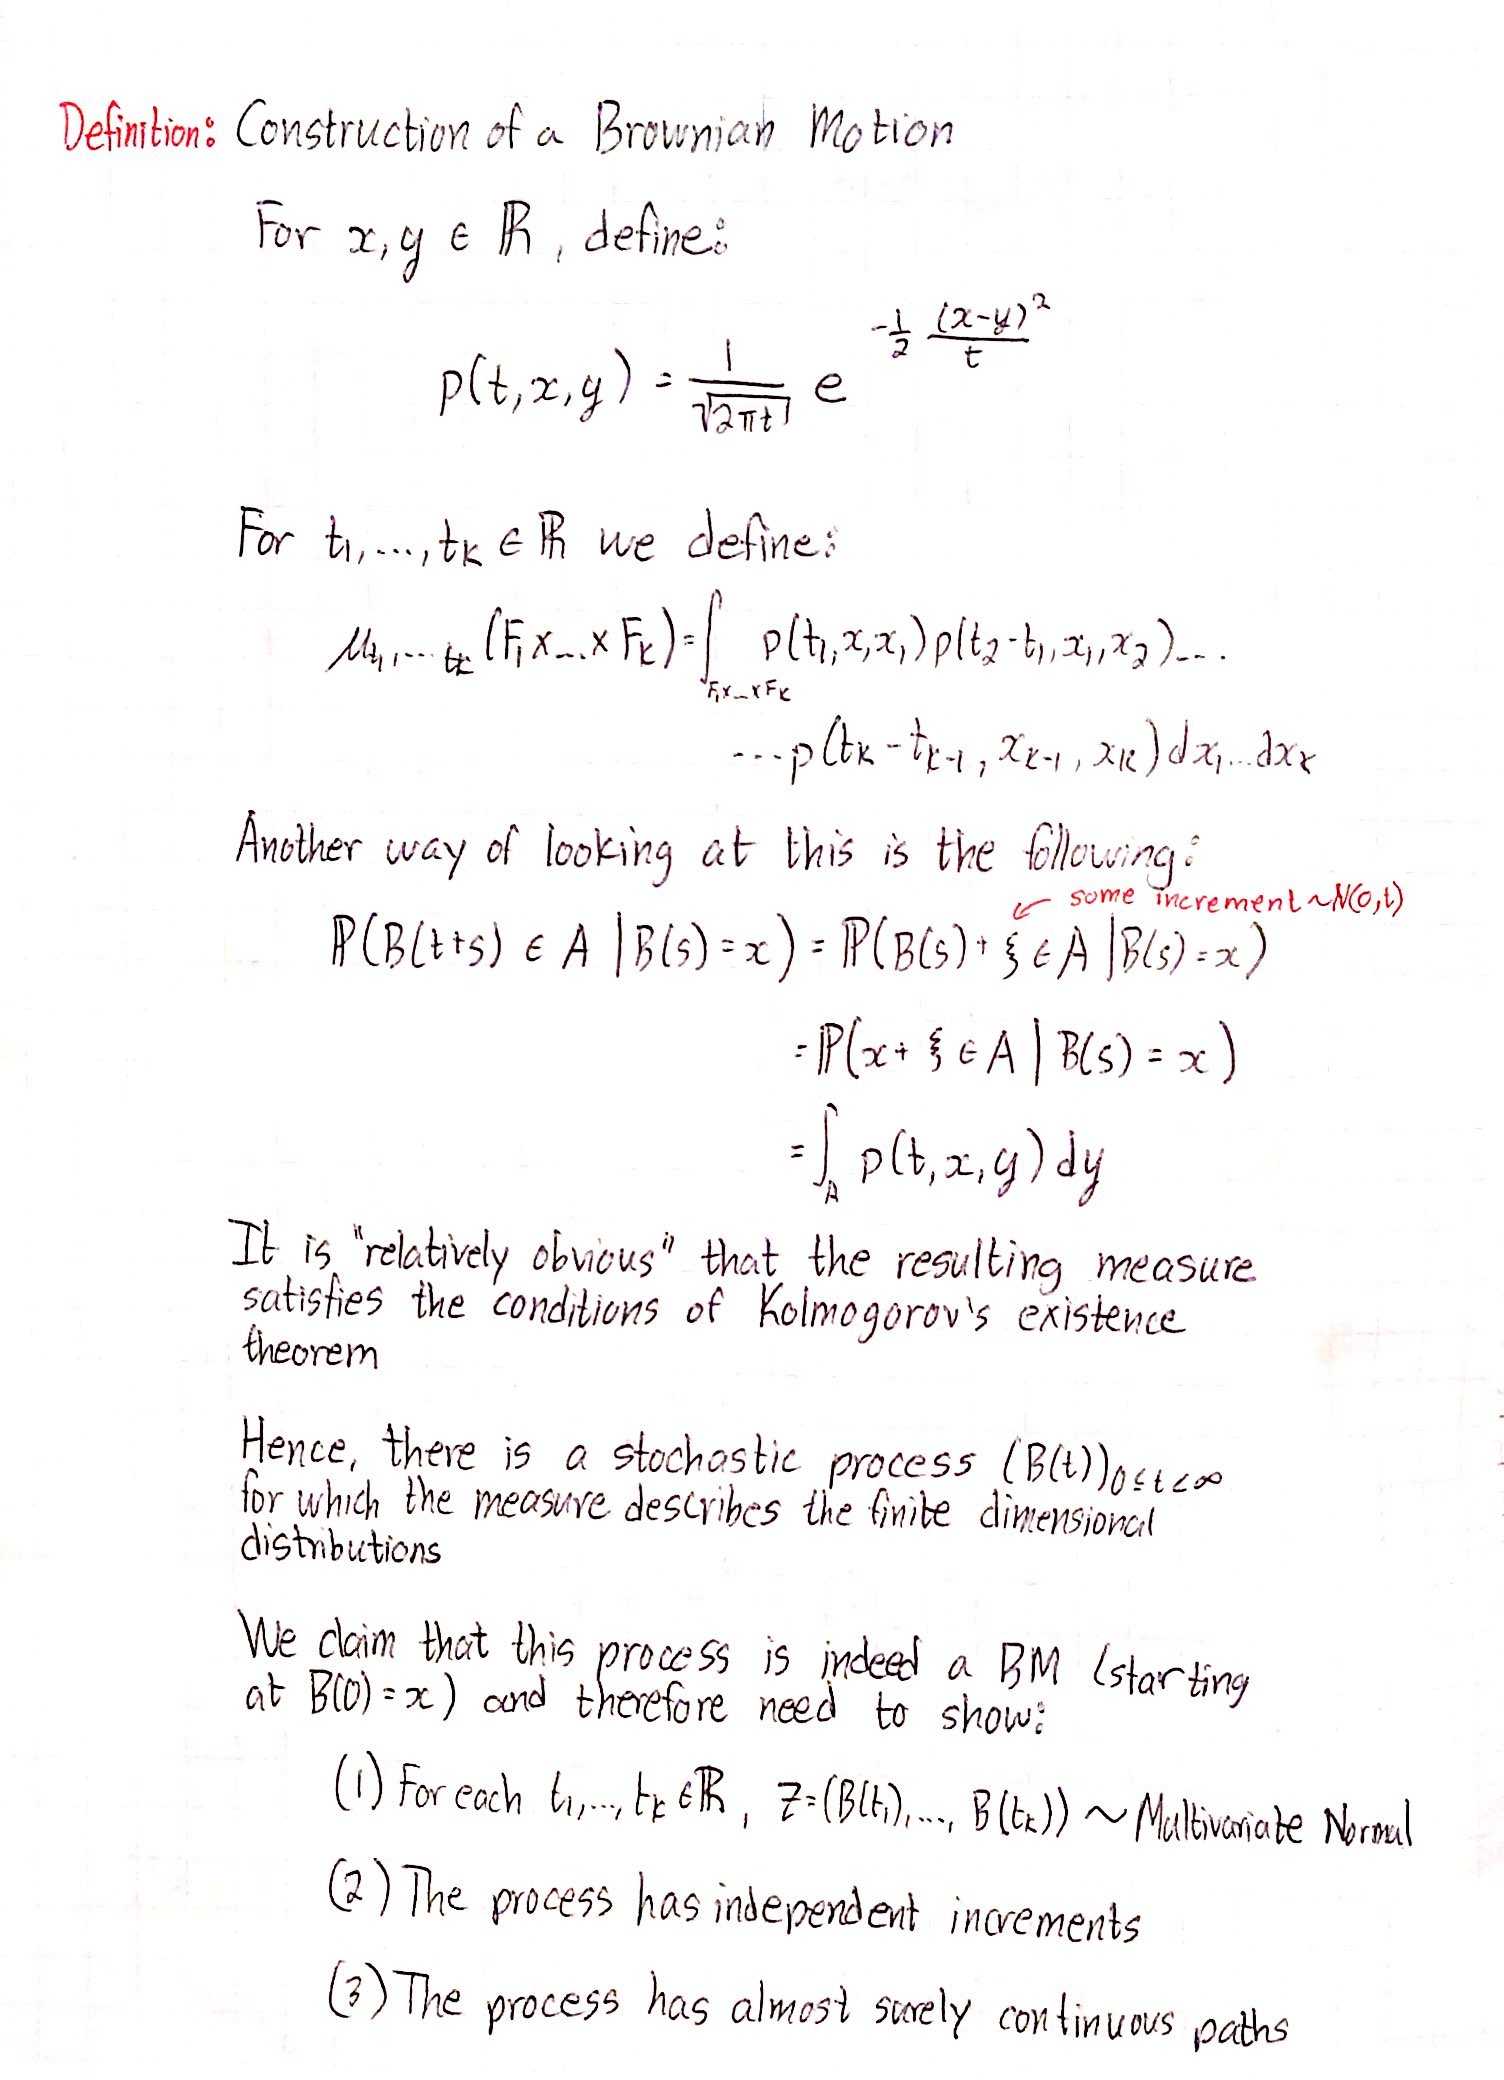 Definition: Construction of a Brownian Motion
For x, y ∈ ℝ, define:
p(t, x, y) = \frac{1}{\sqrt{2πt}} e^{-\frac{1}{2} \frac{(x-y)^2}{t}}
For t₁, ..., t_k ∈ ℝ we define:
μ_{t₁, ... t_k} (F₁ x ... x F_k) = ∫_{F₁ x ... x F_k} p(t₁, x, x₁) p(t₂ - t₁, x₁, x₂) ...
... p(t_k - t_{k-1}, x_{k-1}, x_k) dx₁ ... dx_k
Another way of looking at this is the following:
some increment ~ N(0, t)
ℙ(B(t+s) ∈ A | B(s) = x) = ℙ(B(s) + ξ ∈ A | B(s) = x)
= ℙ(x + ξ ∈ A | B(s) = x)
= ∫_A p(t, x, y) dy
It is "relatively obvious" that the resulting measure
satisfies the conditions of Kolmogorov's existence
theorem
Hence, there is a stochastic process (B(t))_{0≤t<∞}
for which the measure describes the finite dimensional
distributions
We claim that this process is indeed a BM (starting
at B(0) = x) and therefore need to show:
(1) For each t₁, ..., t_k ∈ ℝ, Z = (B(t₁), ..., B(t_k)) ~ Multivariate Normal
(2) The process has independent increments
(3) The process has almost surely continuous paths